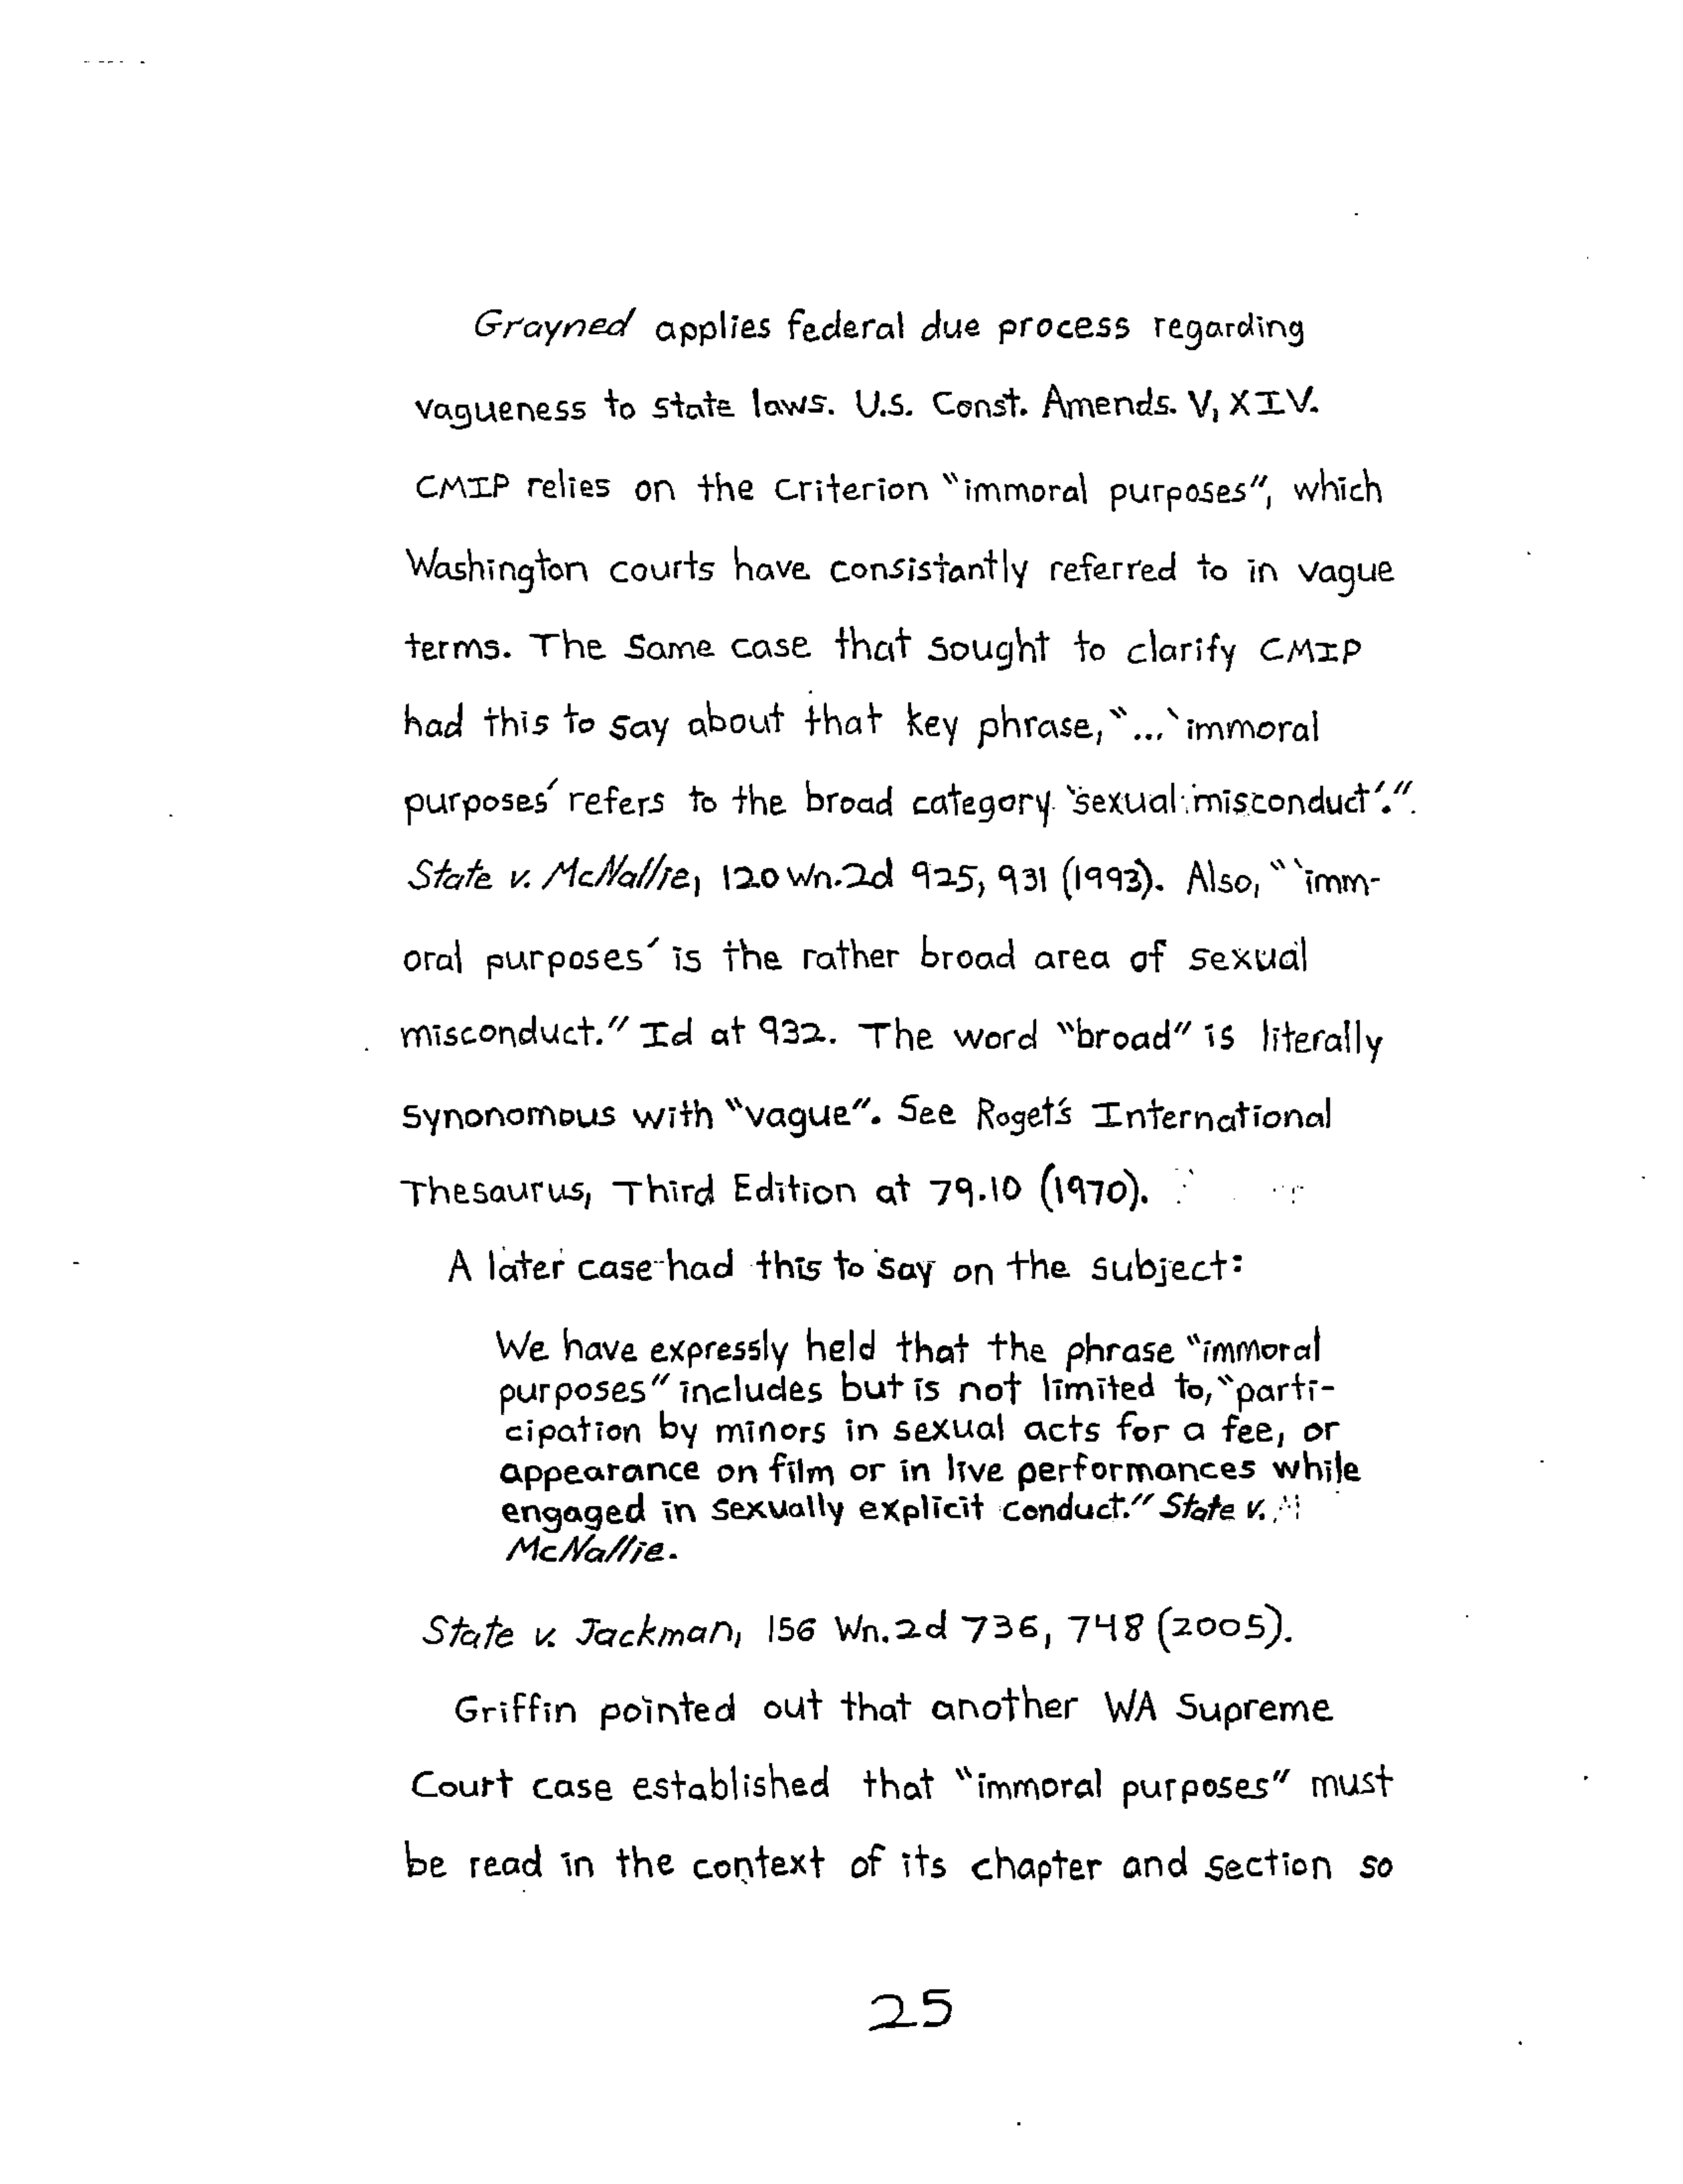 Grayned applies federal due process regarding
vagueness to state laws. U.S. Const. Amends. V, XIV.
CMIP relies on the criterion "immoral purposes", which
Washington courts have consistantly referred to in vague
terms. The same case that sought to clarify CMIP
had this to say about that key phrase, "...'immoral
purposes' refers to the broad category 'sexual misconduct'.".
State v. McNallie, 120 Wn.2d 925, 931 (1993). Also, "'imm-
oral purposes' is the rather broad area of sexual
misconduct." Id at 932. The word "broad" is literally
synonomous with "vague". See Roget's International
Thesaurus, Third Edition at 79.10 (1970).
A later case had this to say on the subject:
We have expressly held that the phrase "immoral
purposes" includes but is not limited to, "parti-
cipation by minors in sexual acts for a fee, or
appearance on film or in live performances while
engaged in sexually explicit conduct." State v.
McNallie.
State v. Jackman, 156 Wn.2d 736, 748 (2005).
Griffin pointed out that another WA Supreme
Court case established that "immoral purposes" must
be read in the context of its chapter and section so
25